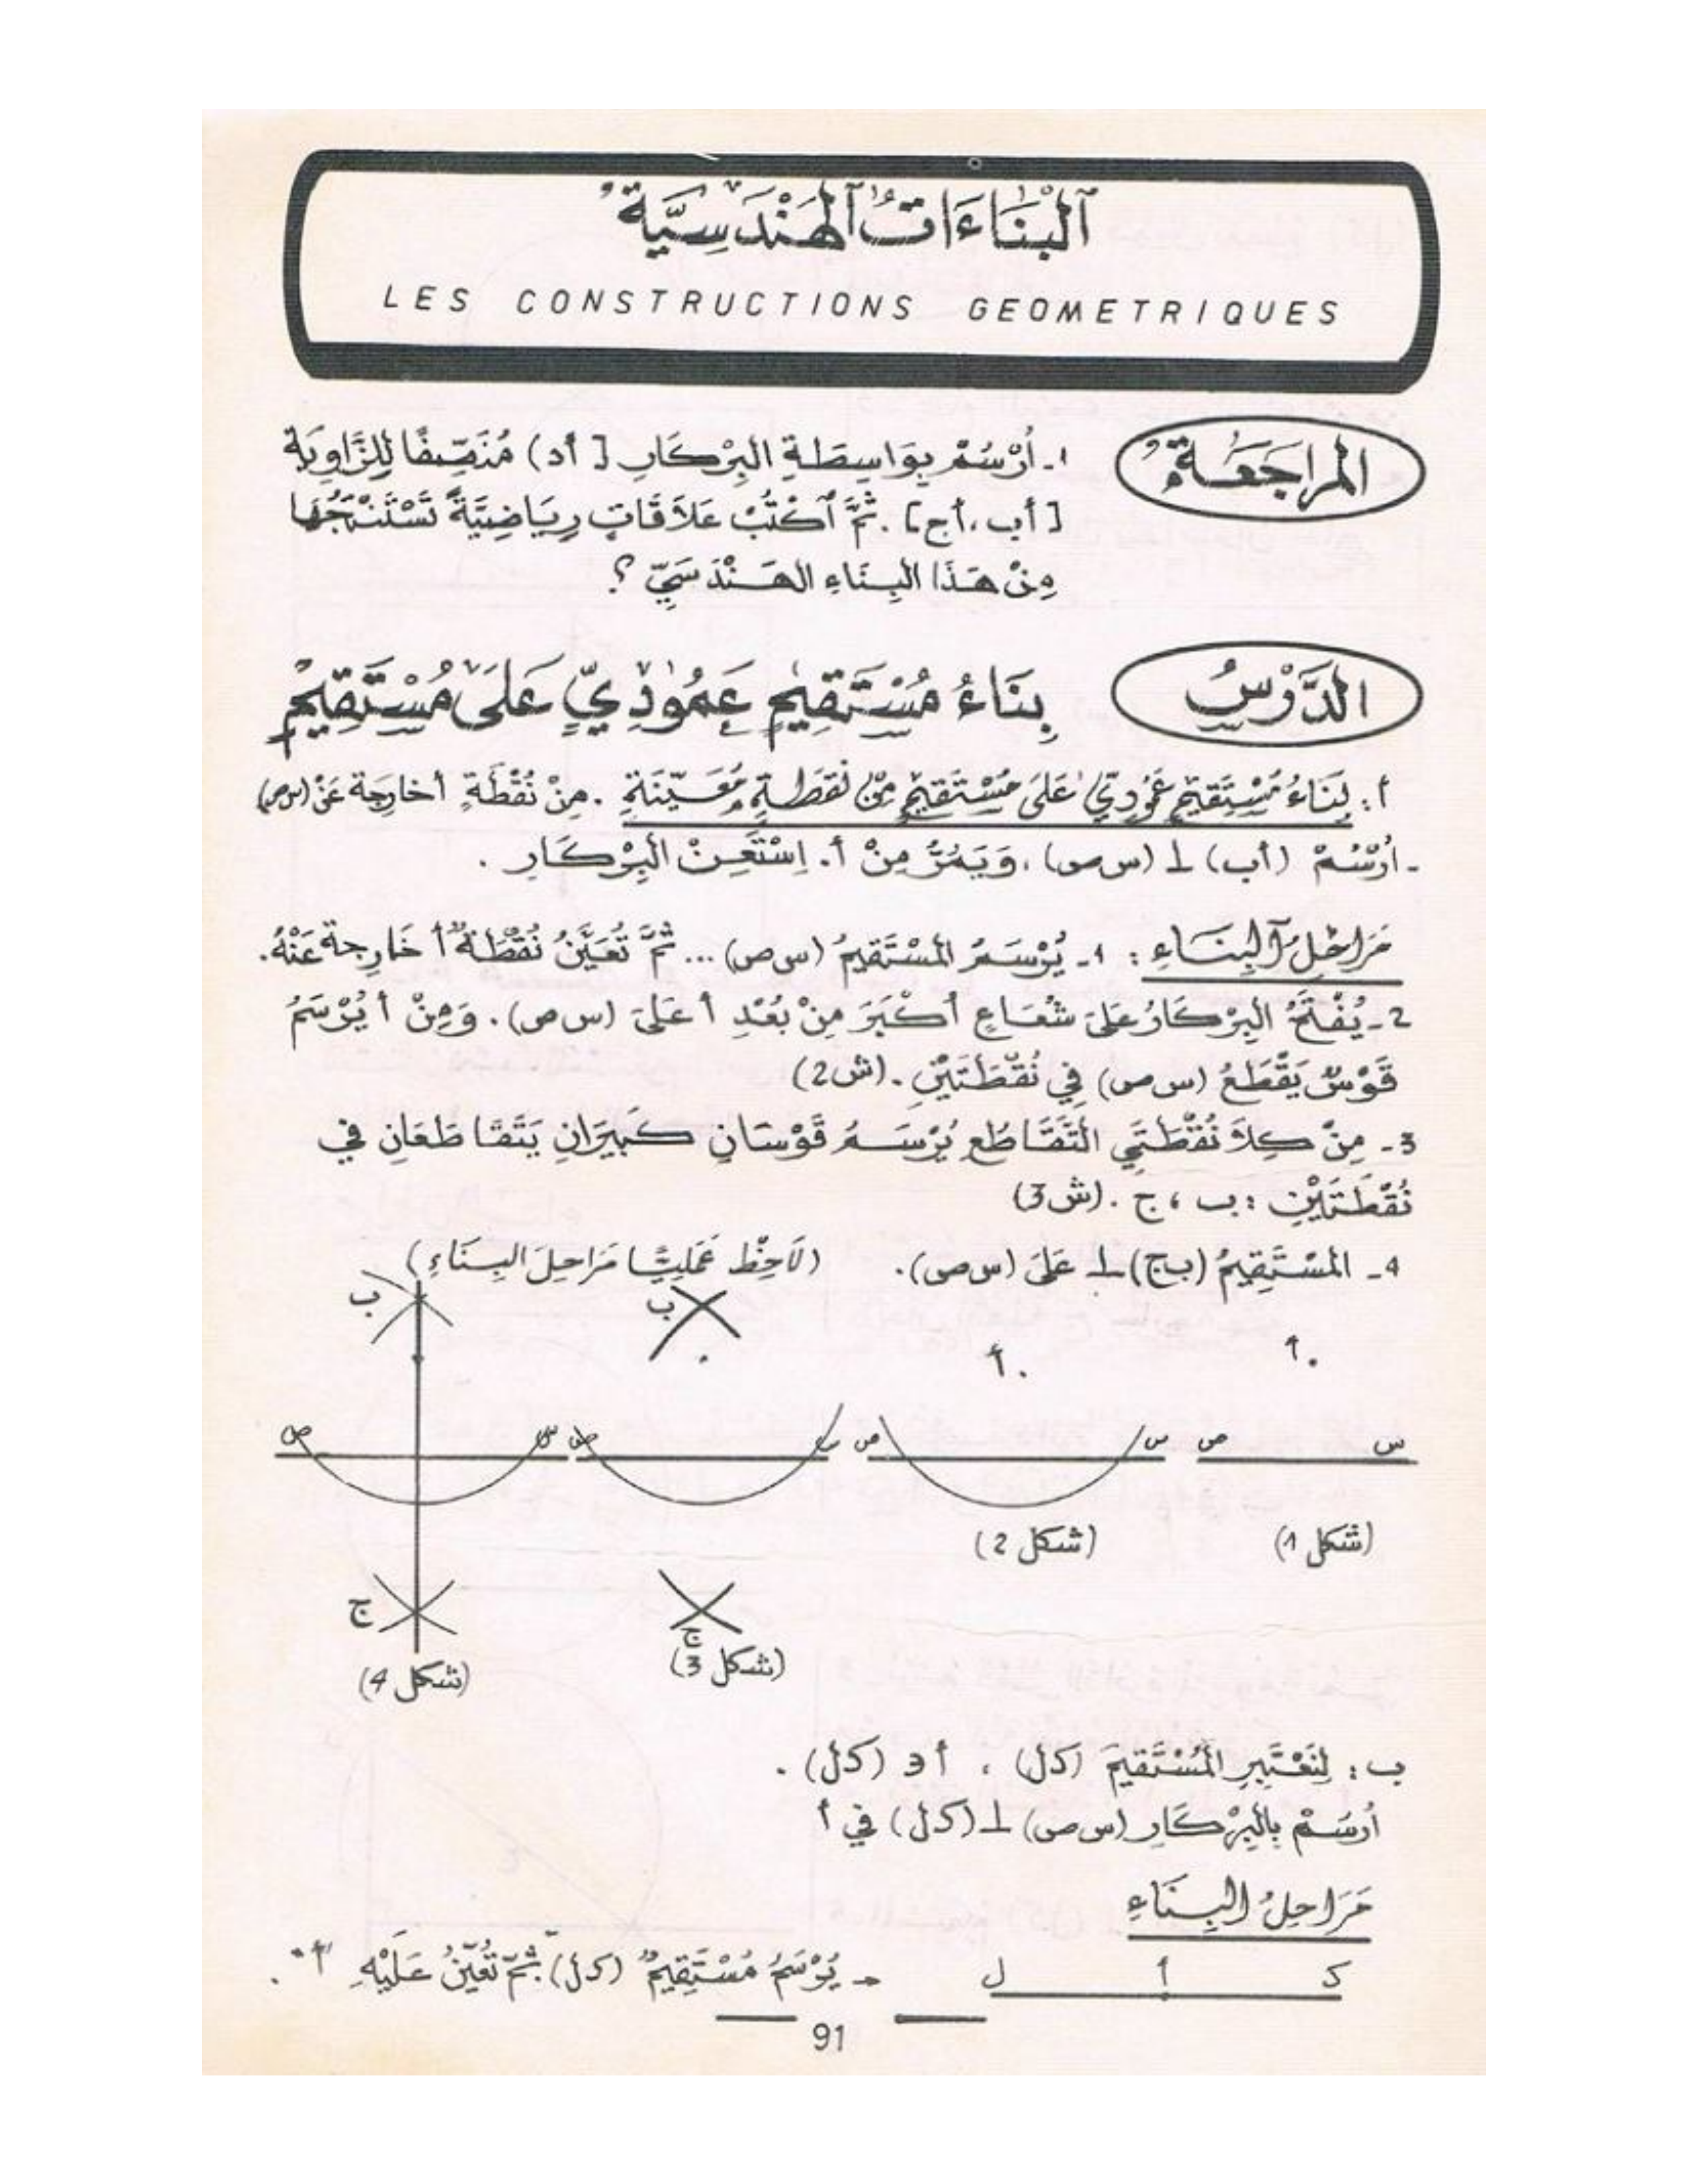 اَلْبِنَاءَاتُ اَلْهَنْدَسِيَّةُ
LES CONSTRUCTIONS GEOMETRIQUES
المُرَاجَعَةُ
1 ـ أُرْسُمْ بِوَاسِطَةِ البِرْكَارِ [ أد) مُنَصِّفًا لِلزَّاوِيَةِ
[ أب ، أج ] . ثُمَّ اُكْتُبْ عَلاَقَاتٍ رِيَاضِيَّةً تَسْتَنْتِجُهَا
مِنْ هَذَا البِنَاءِ الهَنْدَسِيِّ ؟.
الدَّرْسُ
بِنَاءُ مُسْتَقِيمٍ عَمُودِيٍّ عَلَى مُسْتَقِيمٍ
أ : بِنَاءُ مُسْتَقِيمٍ عَمُودِيٍّ عَلَى مُسْتَقِيمٍ مِنْ نُقْطَةٍ مُعَيَّنَةٍ . مِنْ نُقْطَةٍ أ خارِجَة عَنْ (س ص)
ـ اُرْسُمْ (أب) ⊥ (س ص) ، وَيَمُرُّ مِنْ أ . اِسْتَعِنْ البِرْكَارِ .
مَرَاحِلُ اَلْبِنَاءِ : 1 ـ يُرْسَمُ المُسْتَقِيمُ (س ص) ... ثُمَّ تُعَيَّنُ نُقْطَةٌ أ خَارِجة عَنْهُ.
2 ـ يُفْتَحُ البِرْكَارُ عَلَى شُعَاعٍ أَكْبَرَ مِنْ بُعْدِ أ عَلَى (س ص) . وَمِنْ أ يُرْسَمُ
قَوْسٌ يَقْطَعُ (س ص) فِي نُقْطَتَيْنِ . (ش2)
3 ـ مِنْ كِلاَ نُقْطَتَيِ التَّقَاطُعِ يُرْسَمُ قَوْسَانِ كَبِيرَانِ يَتَقَاطَعَانِ فِي
نُقْطَتَيْنِ : ب ، ج . (ش3)
4 ـ المُسْتَقِيمُ (ب ج) ⊥ عَلَى (س ص). (لاَحِظْ عَمَلِيًّا مَرَاحِلَ البِنَاءِ)
ب ب
أ . أ .
س ص س ص س ص س ص
(شكل 1) (شكل 2)
ج ج
(شكل 3) (شكل 4)
ب : لِنَعْتَبِرِ المُسْتَقِيمَ (كل) ، أ ∈ (كل) .
اُرْسُمْ بِالبِرْكَارِ (س ص) ⊥ (كل) في أ
مَرَاحِلُ البِنَاءِ
ك أ ل ـ يُرْسَمُ مُسْتَقِيمٌ (كل) ثُمَّ تُعَيَّنُ عَلَيْهِ "أ" .
91